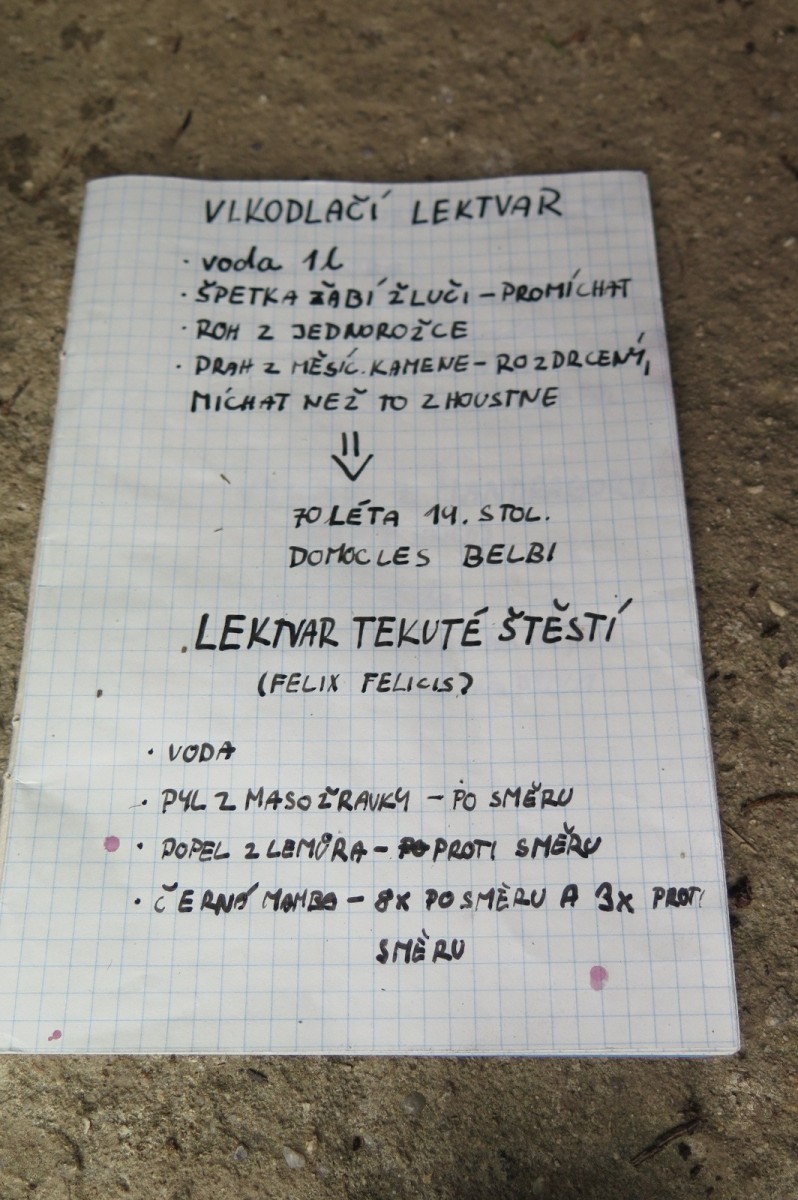 VLKODLAČÍ LEKTVAR
· voda 1l
· ŠPETKA ŽABÍ ŽLUČI – PROMÍCHAT
· ROH Z JEDNOROŽCE
· PRAH Z MĚSÍC. KAMENE – ROZDRCENÝ,
MÍCHAT NEŽ TO ZHOUSTNE
⇓
70 LÉTA 19. STOL.
DOMOCLES BELBI
LEKTVAR TEKUTÉ ŠTĚSTÍ
(FELIX FELICIS)
· VODA
· PYL Z MASOŽRAVKY – PO SMĚRU
· POPEL Z LEMŮRA – PROTI SMĚRU
· ČERNÁ MAMBA – 8x PO SMĚRU A 3x PROTI
SMĚRU